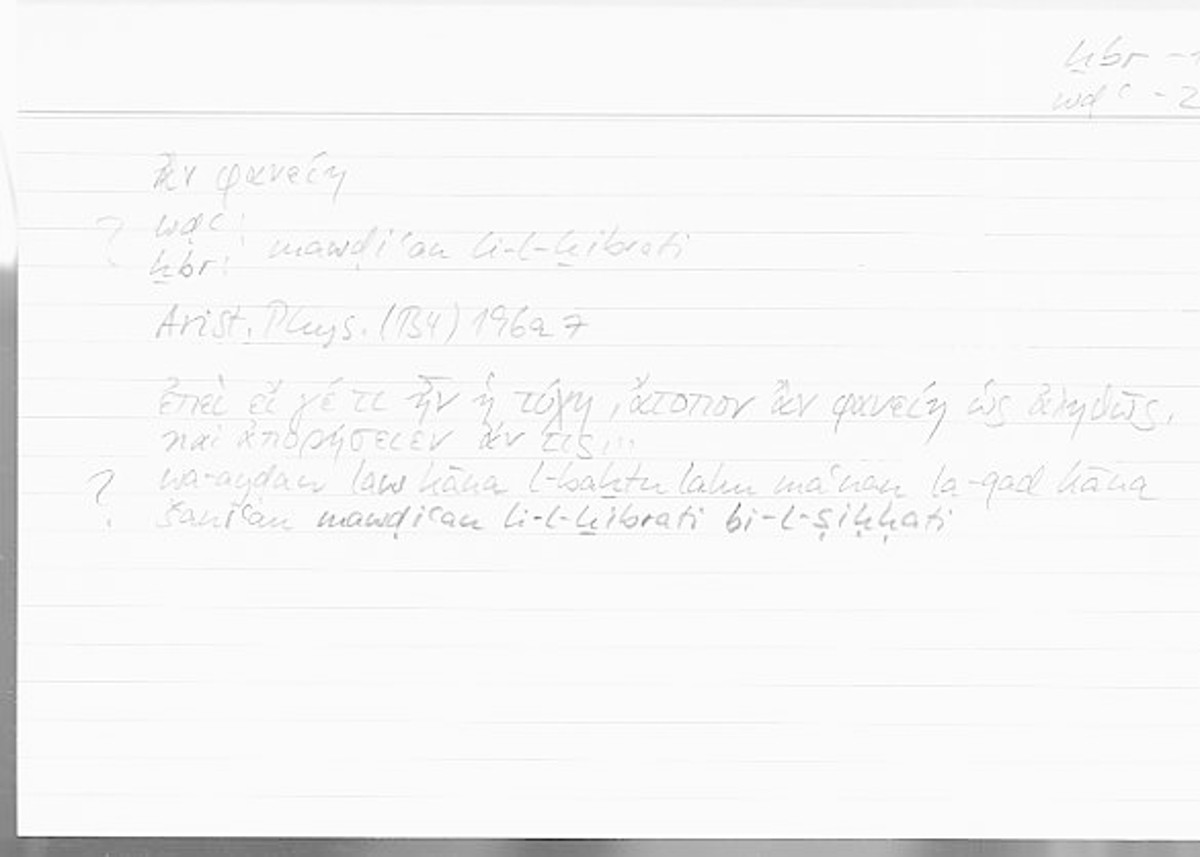 ḫbr - 1
wḍʿ - 2
ἂν φανείη
? wḍʿ:
ḫbr: mawḍiʿan li-l-ḫibrati
Arist. Phys. (B4) 196a7
ἐπεὶ εἴ γέ τι ἦν ἡ τύχη, ἄτοπον ἂν φανείη ὡς ἀληθῶς,
καὶ ἀπορήσειεν ἄν τις...
? wa-ayḍan law kāna l-baḫtu lahu maʿnan la-qad kāna
šanīʿan mawḍiʿan li-l-ḫibrati bi-l-ṣiḥḥati